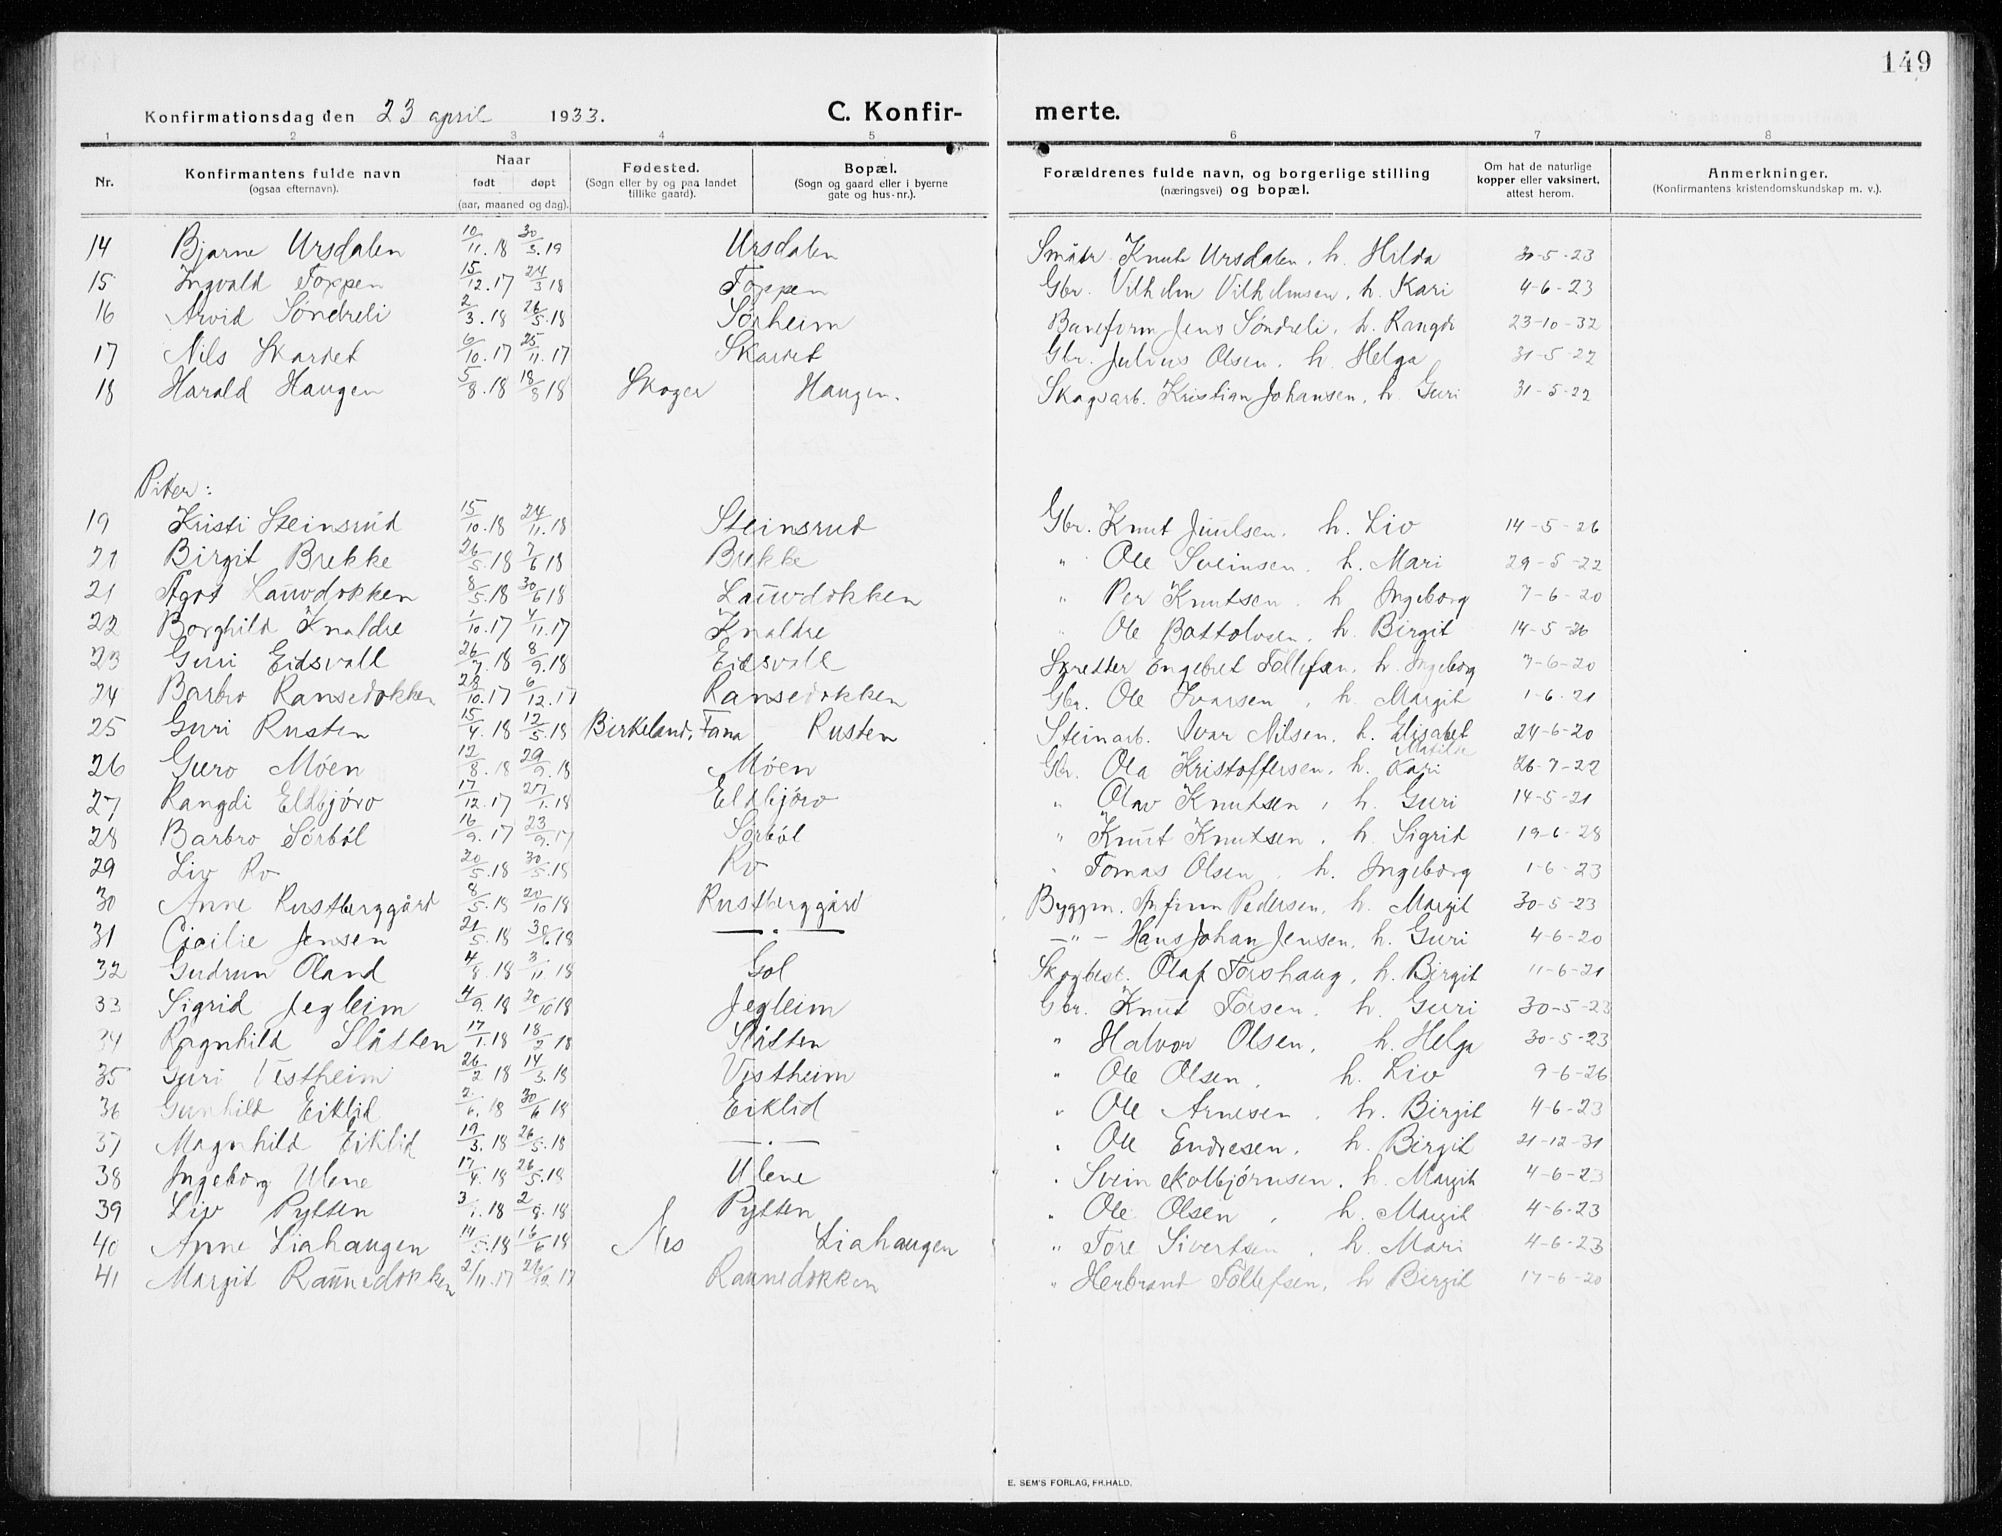 149
Konfirmationsdag den 23 april 1933. C. Konfir- merte.
1 2 3 4 5 6 7 8
Nr. Konfirmantens fulde navn (ogsaa efternavn). Naar født døpt (aar, maaned og dag). Fødested. (Sogn eller by og paa landet tillike gaard). Bopæl. (Sogn og gaard eller i byerne gate og hus-nr.). Forældrenes fulde navn, og borgerlige stilling (næringsvei) og bopæl. Om hat de naturlige kopper eller vaksinert, attest herom. Anmerkninger. (Konfirmantens kristendomskundskap m. v.).
14 Bjarne Ursdalen 10/11.18 30/3.19 Ursdalen Småbr Knut Ursdalen, h. Hilda 30-5-23
15 Ingvald Toppen 15/12.17 24/3 18 Toppen Gbr. Vilhelm Vilhelmsen, h. Kari 4-6-23
16 Arvid Søndreli 2/3.18 26/5.18 Sørheim Baneform Jens Søndreli, h. Rangdi 23-10-32
17 Nils Skardet 6/10.17 25/11.17 Skardet Gbr. Julius Olsen, h. Helga 31-5-22
18 Harald Haugen 5/8.18 18/8 18 Skoger Haugen. Skogsarb. Kristian Johansen, h. Guri 31-5-22
Piker:
19 Kristi Steinsrud 15/10.18 24/11.18 Steinsrud Gbr. Knut Juulsen, h. Liv 14-5-26
21 Birgit Brekke 26/5.18 7/6 18 Brekke " Ole Sveinsen, h. Mari 29-5-22
21 Agot Lauvdokken 8/5.18 30/6 18 Lauvdokken " Per Knutsen, h Ingeborg 7-6-20
22 Borghild Knaldre 1/10.17 4/11.17 Knaldre " Ole Bottolvsen, h. Birgit 14-5-26
23 Guri Eidsvall 26/7.18 8/9.18 Eidsvall Skredder Engebret Tollefsen, h. Ingeborg 7-6-20
24 Barbro Ransedokken 28/10.17 6/12.17 Ransedokken Gbr. Ole Ivarsen, h. Margit 1-6-21
25 Guri Rusten 15/4.18 12/5.18 Birkeland, Fana Rusten Steinarb. Ivar Nilsen, h. Elisabet Matilde 24-6-20
26 Guro Møen 12/8.18 29/9.18 Møen Gbr. Ola Kristoffersen, h. Kari 26-7-22
27 Rangdi Eldbjørv 17/12.17 27/1.18 Eldbjørv " Olav Knutsen, h. Guri 14-5-21
28 Barbro Sørbøl 16/9.17 23/9.17 Sørbøl " Knut Knutsen, h. Sigrid 19-6-28
29 Liv Ro 20/5.18 30/5.18 Ro " Tomas Olsen, h. Ingeborg 1-6-23
30 Anne Rustberggård 8/5.18 20/10 18 Rustberggård Byggm. Anfinn Pedersen, h. Margit 30-5-23
31 Cicilie Jensen 21/5.18 30/6 18 — . — —"— Hans Johan Jensen, h. Guri 4-6-20
32 Gudrun Oland 4/8.18 3/11 18 Gol Skogbest. Olaf Torshaug, h. Birgit 11-6-21
33 Sigrid Jegleim 4/9.18 20/10 18 Jegleim Gbr. Knut Torsen, h. Guri 30-5-23
34 Ragnhild Slåtten 17/1.18 18/2 18 Slåtten " Halvor Olsen, h. Helga 30-5-23
35 Guri Vestheim 26/2 18 14/3.18 Vestheim " Ole Olsen, h. Liv 9-6-26
36 Gunhild Eiklid 2/6.18 30/6 18 Eiklid " Ole Arnesen, h. Birgit 4-6-23
37 Magnhild Eiklid 19/3.18 26/5.18 — . — " Ole Endresen, h. Birgit 21-12-31
38 Ingeborg Ulene 17/4.18 26/5.18 Ulene " Svein Kolbjørnsen, h. Margit 4-6-23
39 Liv Pytten 3/1.18 2/8.18 Pytten " Ole Olsen, h. Margit 4-6-23
40 Anne Liahaugen 14/5.18 16/6 18 Nes Liahaugen " Tore Sivertsen, h. Mari 4-6-23
41 Margit Raunedokken 2/11.17 26/12.17 Raunedokken " Herbrand Tollefsen, h Birgit 17-6-20
E. SEM'S FORLAG, FR.HALD.